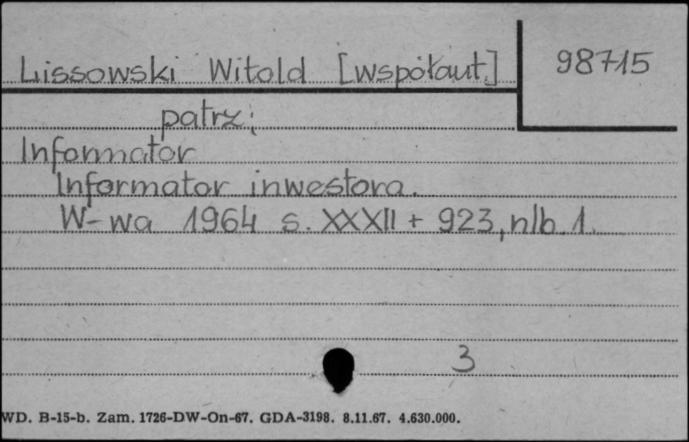 Lissowski Witold [współaut.]
98715
patrz:
Informator
Informator inwestora.
W-wa 1964 s. XXXII + 923, nlb. 1.
3
WD. B-15-b. Zam. 1726-DW-On-67. GDA-3198. 8.11.67. 4.630.000.